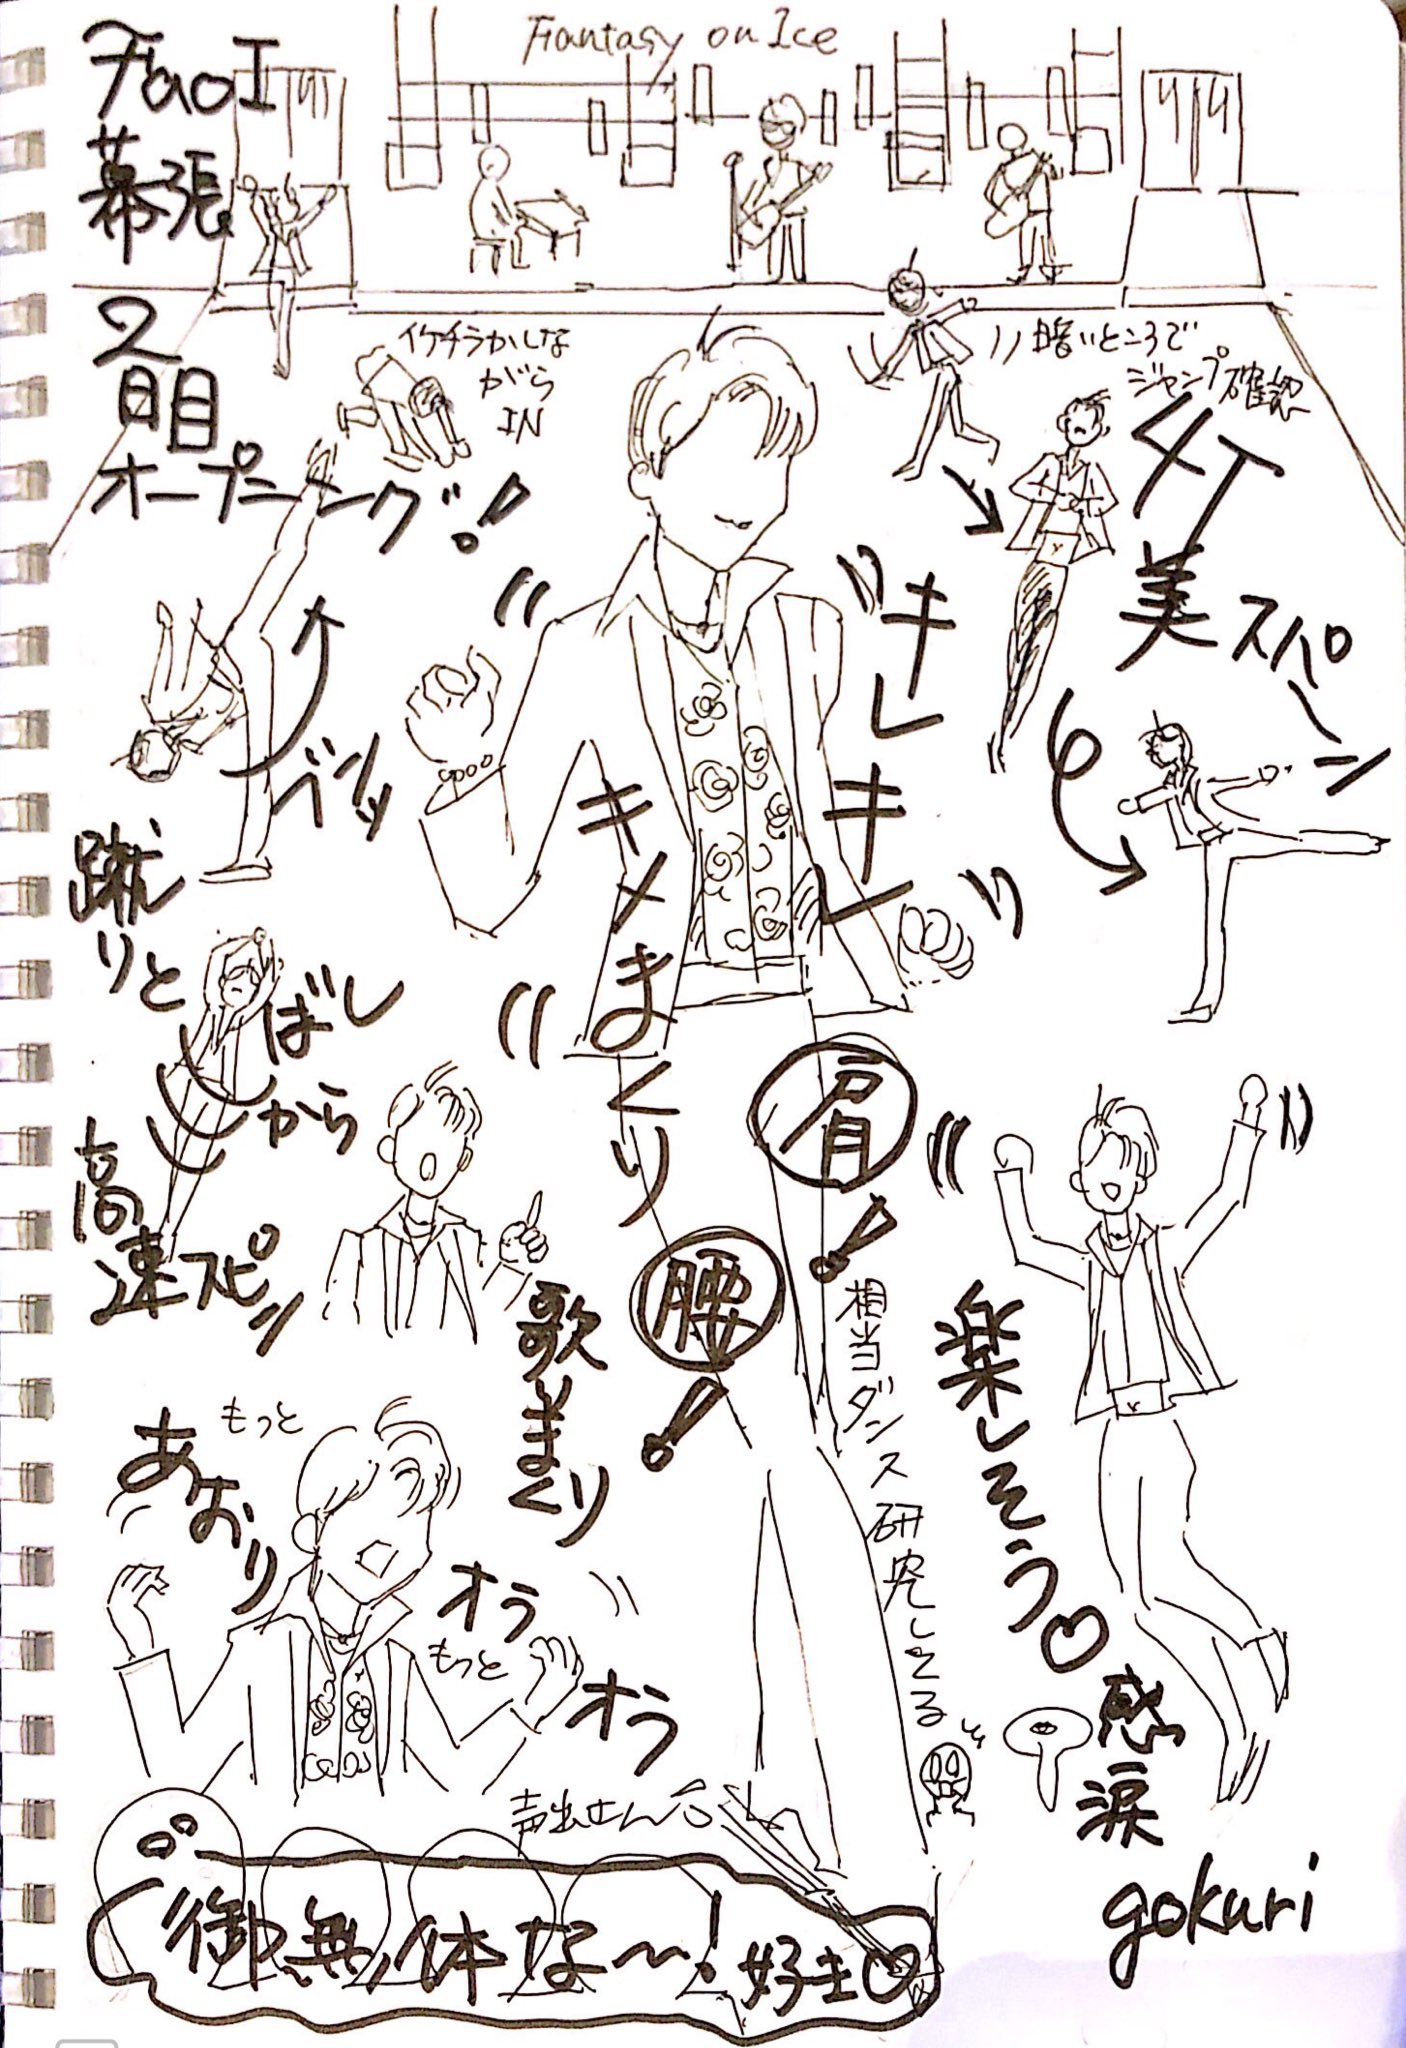 Fantasy on Ice
FaoI
幕張
2
日目
オープニング!
イケチラかしな
がら
IN
暗いところで
ジャンプ確認
4T
美スパーン
キレキレ
キメまくり
ケバッ
蹴りとばし
から
高速スピン
肩!
腰!
相当ダンス研究してる
歌いまくり
楽しそう♡
感涙
もっと
あおり
オラ
もっと
オラ
声出せん
御無体な〜!好き♡
gokuri